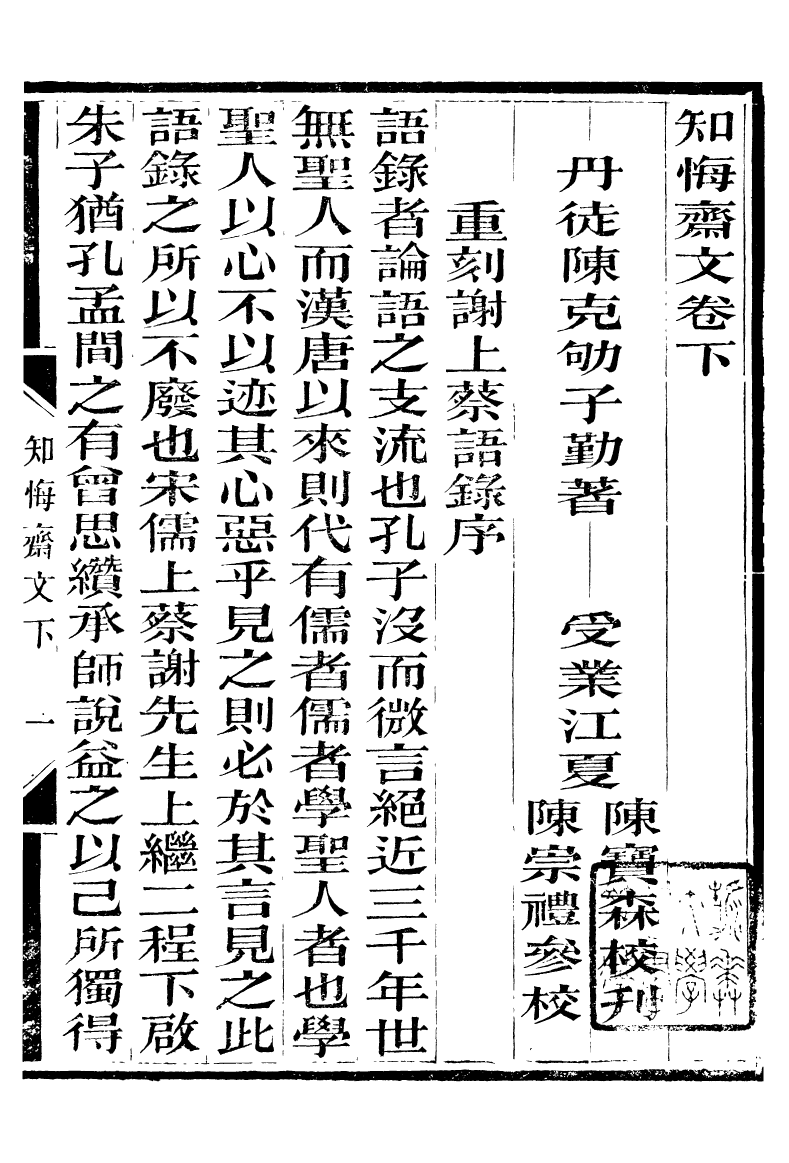 知悔齋文卷下
丹徒陳克劬子勤著　受業江夏
陳寶森校刊
陳崇禮參校
重刻謝上蔡語錄序
語錄者論語之支流也孔子沒而微言絕近三千年世
無聖人而漢唐以來則代有儒者儒者學聖人者也學
聖人以心不以迹其心惡乎見之則必於其言見之此
語錄之所以不廢也宋儒上蔡謝先生上繼二程下啟
朱子猶孔孟間之有曾思纘承師說益之以己所獨得
知悔齋文下
一